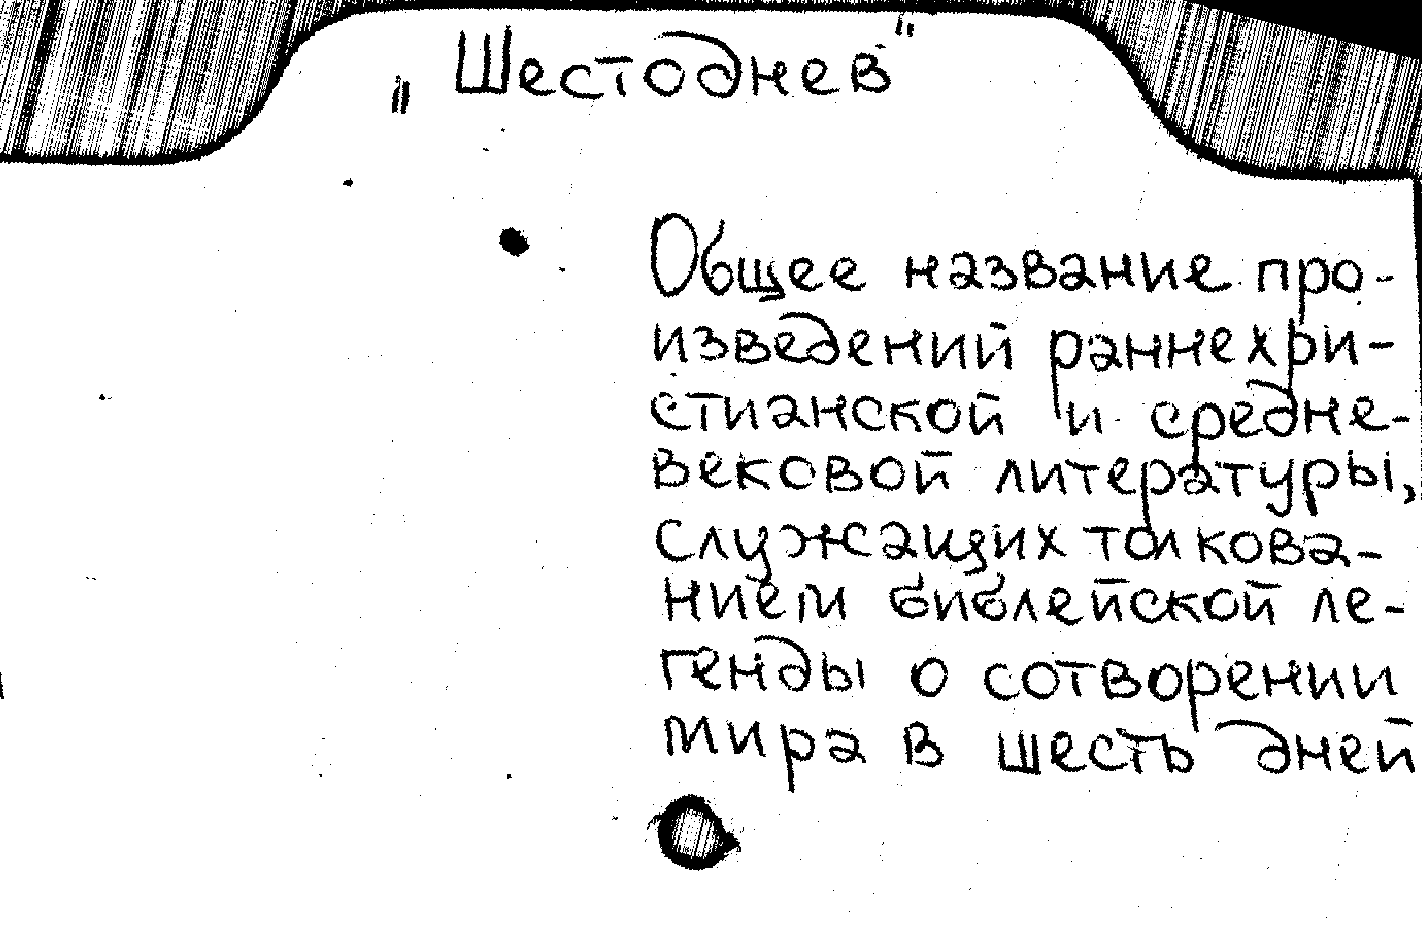 "Шестоднев"
Общее название про-
изведений раннехри-
стианской и средне-
вековой литературы,
служащих толкова-
нием библейской ле-
генды о сотворении
мира в шесть дней